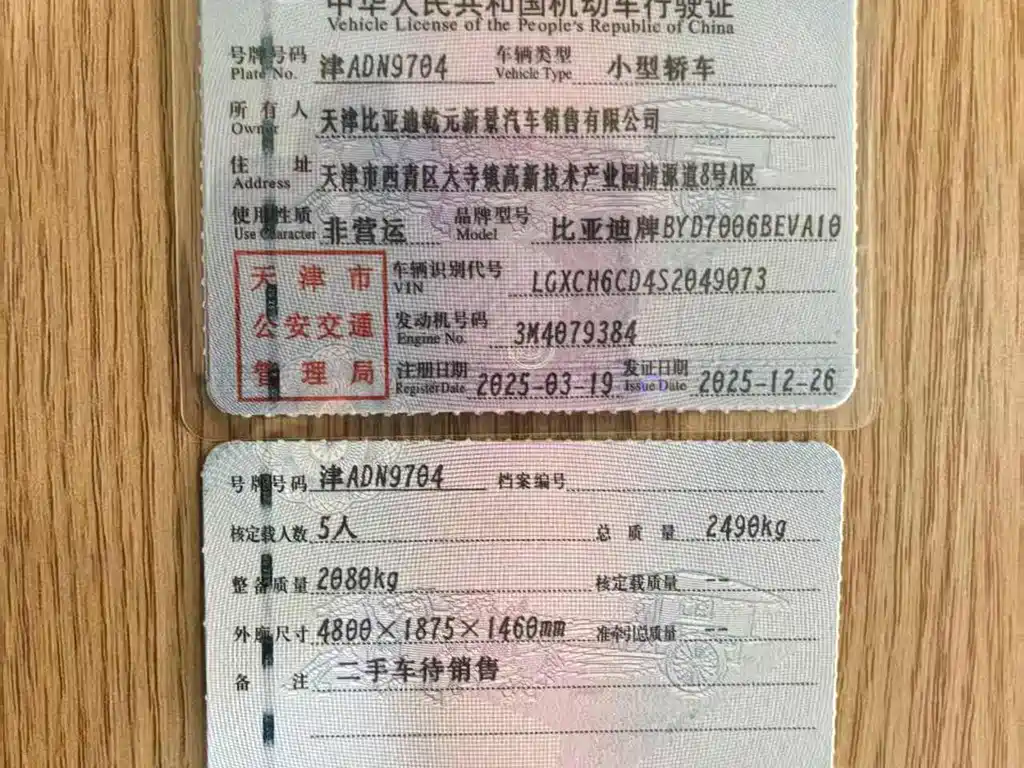 中华人民共和国机动车行驶证
Vehicle License of the People's Republic of China
号牌号码 津ADN9704 车辆类型 小型轿车
Plate No. Vehicle Type
所有人 天津比亚迪乾元新景汽车销售有限公司
Owner
住址 天津市西青区大寺镇高新技术产业园储源道8号A区
Address
使用性质 非营运 品牌型号 比亚迪牌BYD7006BEVA10
Use Character Model
天津市 车辆识别代号 LGXCH6CD4S2049073
VIN
公安交通 发动机号码 3M4079384
Engine No.
管理局 注册日期 2025-03-19 发证日期 2025-12-26
Register Date Issue Date
号牌号码 津ADN9704 档案编号
核定载人数 5人 总质量 2490kg
整备质量 2080kg 核定载质量 --
外廓尺寸 4800×1875×1460mm 准牵引总质量 --
备注 二手车待销售